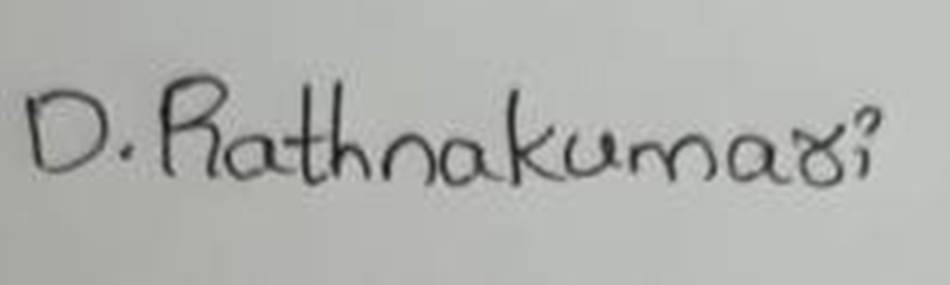 D. Rathnakumari